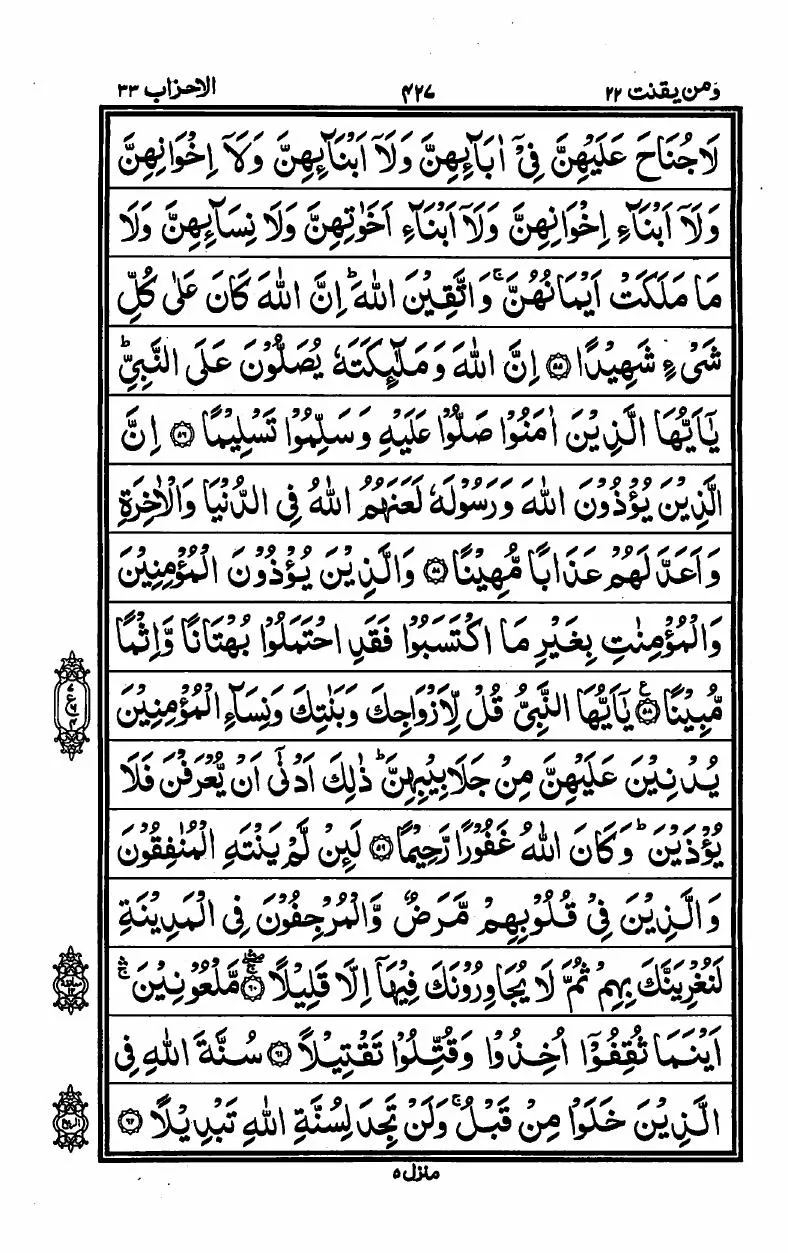 وَمن یقنت ۲۲
۴۲۷
الاحزاب ۳۳
لَا جُنَاحَ عَلَیْهِنَّ فِیْۤ اٰبَآىِٕهِنَّ وَلَاۤ اَبْنَآىِٕهِنَّ وَلَاۤ اِخْوَانِهِنَّ
وَلَاۤ اَبْنَآءِ اِخْوَانِهِنَّ وَلَاۤ اَبْنَآءِ اَخَوٰتِهِنَّ وَلَا نِسَآىِٕهِنَّ وَلَا
مَا مَلَكَتْ اَیْمَانُهُنَّ ۚ وَاتَّقِیْنَ اللّٰهَ ؕ اِنَّ اللّٰهَ كَانَ عَلٰی كُلِّ
شَیْءٍ شَهِیْدًا ﴿۵۵﴾ اِنَّ اللّٰهَ وَمَلٰٓىِٕكَتَهٗ یُصَلُّوْنَ عَلَی النَّبِیِّ ؕ
یٰۤاَیُّهَا الَّذِیْنَ اٰمَنُوْا صَلُّوْا عَلَیْهِ وَسَلِّمُوْا تَسْلِیْمًا ﴿۵۶﴾ اِنَّ
الَّذِیْنَ یُؤْذُوْنَ اللّٰهَ وَرَسُوْلَهٗ لَعَنَهُمُ اللّٰهُ فِی الدُّنْیَا وَالْاٰخِرَةِ
وَاَعَدَّ لَهُمْ عَذَابًا مُّهِیْنًا ﴿۵۷﴾ وَالَّذِیْنَ یُؤْذُوْنَ الْمُؤْمِنِیْنَ
وَالْمُؤْمِنٰتِ بِغَیْرِ مَا اكْتَسَبُوْا فَقَدِ احْتَمَلُوْا بُهْتَانًا وَّاِثْمًا
مُّبِیْنًا ﴿۵۸﴾ ع یٰۤاَیُّهَا النَّبِیُّ قُلْ لِّاَزْوَاجِكَ وَبَنٰتِكَ وَنِسَآءِ الْمُؤْمِنِیْنَ
یُدْنِیْنَ عَلَیْهِنَّ مِنْ جَلَابِیْبِهِنَّ ؕ ذٰلِكَ اَدْنٰۤی اَنْ یُّعْرَفْنَ فَلَا
یُؤْذَیْنَ ؕ وَكَانَ اللّٰهُ غَفُوْرًا رَّحِیْمًا ﴿۵۹﴾ لَىِٕنْ لَّمْ یَنْتَهِ الْمُنٰفِقُوْنَ
وَالَّذِیْنَ فِیْ قُلُوْبِهِمْ مَّرَضٌ وَّالْمُرْجِفُوْنَ فِی الْمَدِیْنَةِ
لَنُغْرِیَنَّكَ بِهِمْ ثُمَّ لَا یُجَاوِرُوْنَكَ فِیْهَاۤ اِلَّا قَلِیْلًا ﴿۶۰﴾ مَّلْعُوْنِیْنَ ۛۚ
اَیْنَمَا ثُقِفُوْۤا اُخِذُوْا وَقُتِّلُوْا تَقْتِیْلًا ﴿۶۱﴾ سُنَّةَ اللّٰهِ فِی
الَّذِیْنَ خَلَوْا مِنْ قَبْلُ ۚ وَلَنْ تَجِدَ لِسُنَّةِ اللّٰهِ تَبْدِیْلًا ﴿۶۲﴾
منزل ۵